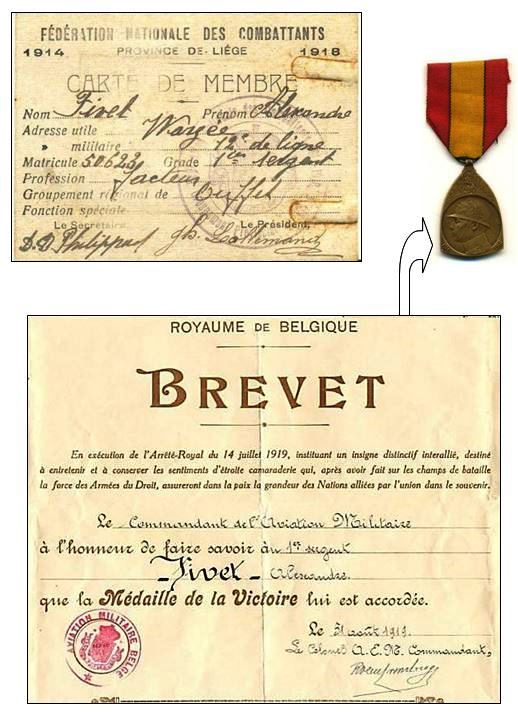 FÉDÉRATION NATIONALE DES COMBATTANTS
1914 PROVINCE DE LIÉGE 1918
CARTE DE MEMBRE
Nom Fivet Prénom Alexandre
Adresse utile Warzée
» militaire 12e de ligne
Matricule 50622 Grade 1er sergent
Profession facteur
Groupement régional de Ouffet
Fonction spéciale
Le Secrétaire, Le Président,
ROYAUME DE BELGIQUE
BREVET
En exécution de l'Arrêté-Royal du 14 juillet 1919, instituant un insigne distinctif interallié, destiné
à entretenir et à conserver les sentiments d'étroite camaraderie qui, après avoir fait sur les champs de bataille
la force des Armées du Droit, assureront dans la paix la grandeur des Nations alliées par l'union dans le souvenir.
Le Commandant de l'Aviation Militaire
à l'honneur de faire savoir au 1er sergent
Fivet Alexandre
que la Médaille de la Victoire lui est accordée.
AVIATION MILITAIRE BELGE
Le 31 août 1919.
Le Colonel A.E.M. Commandant,